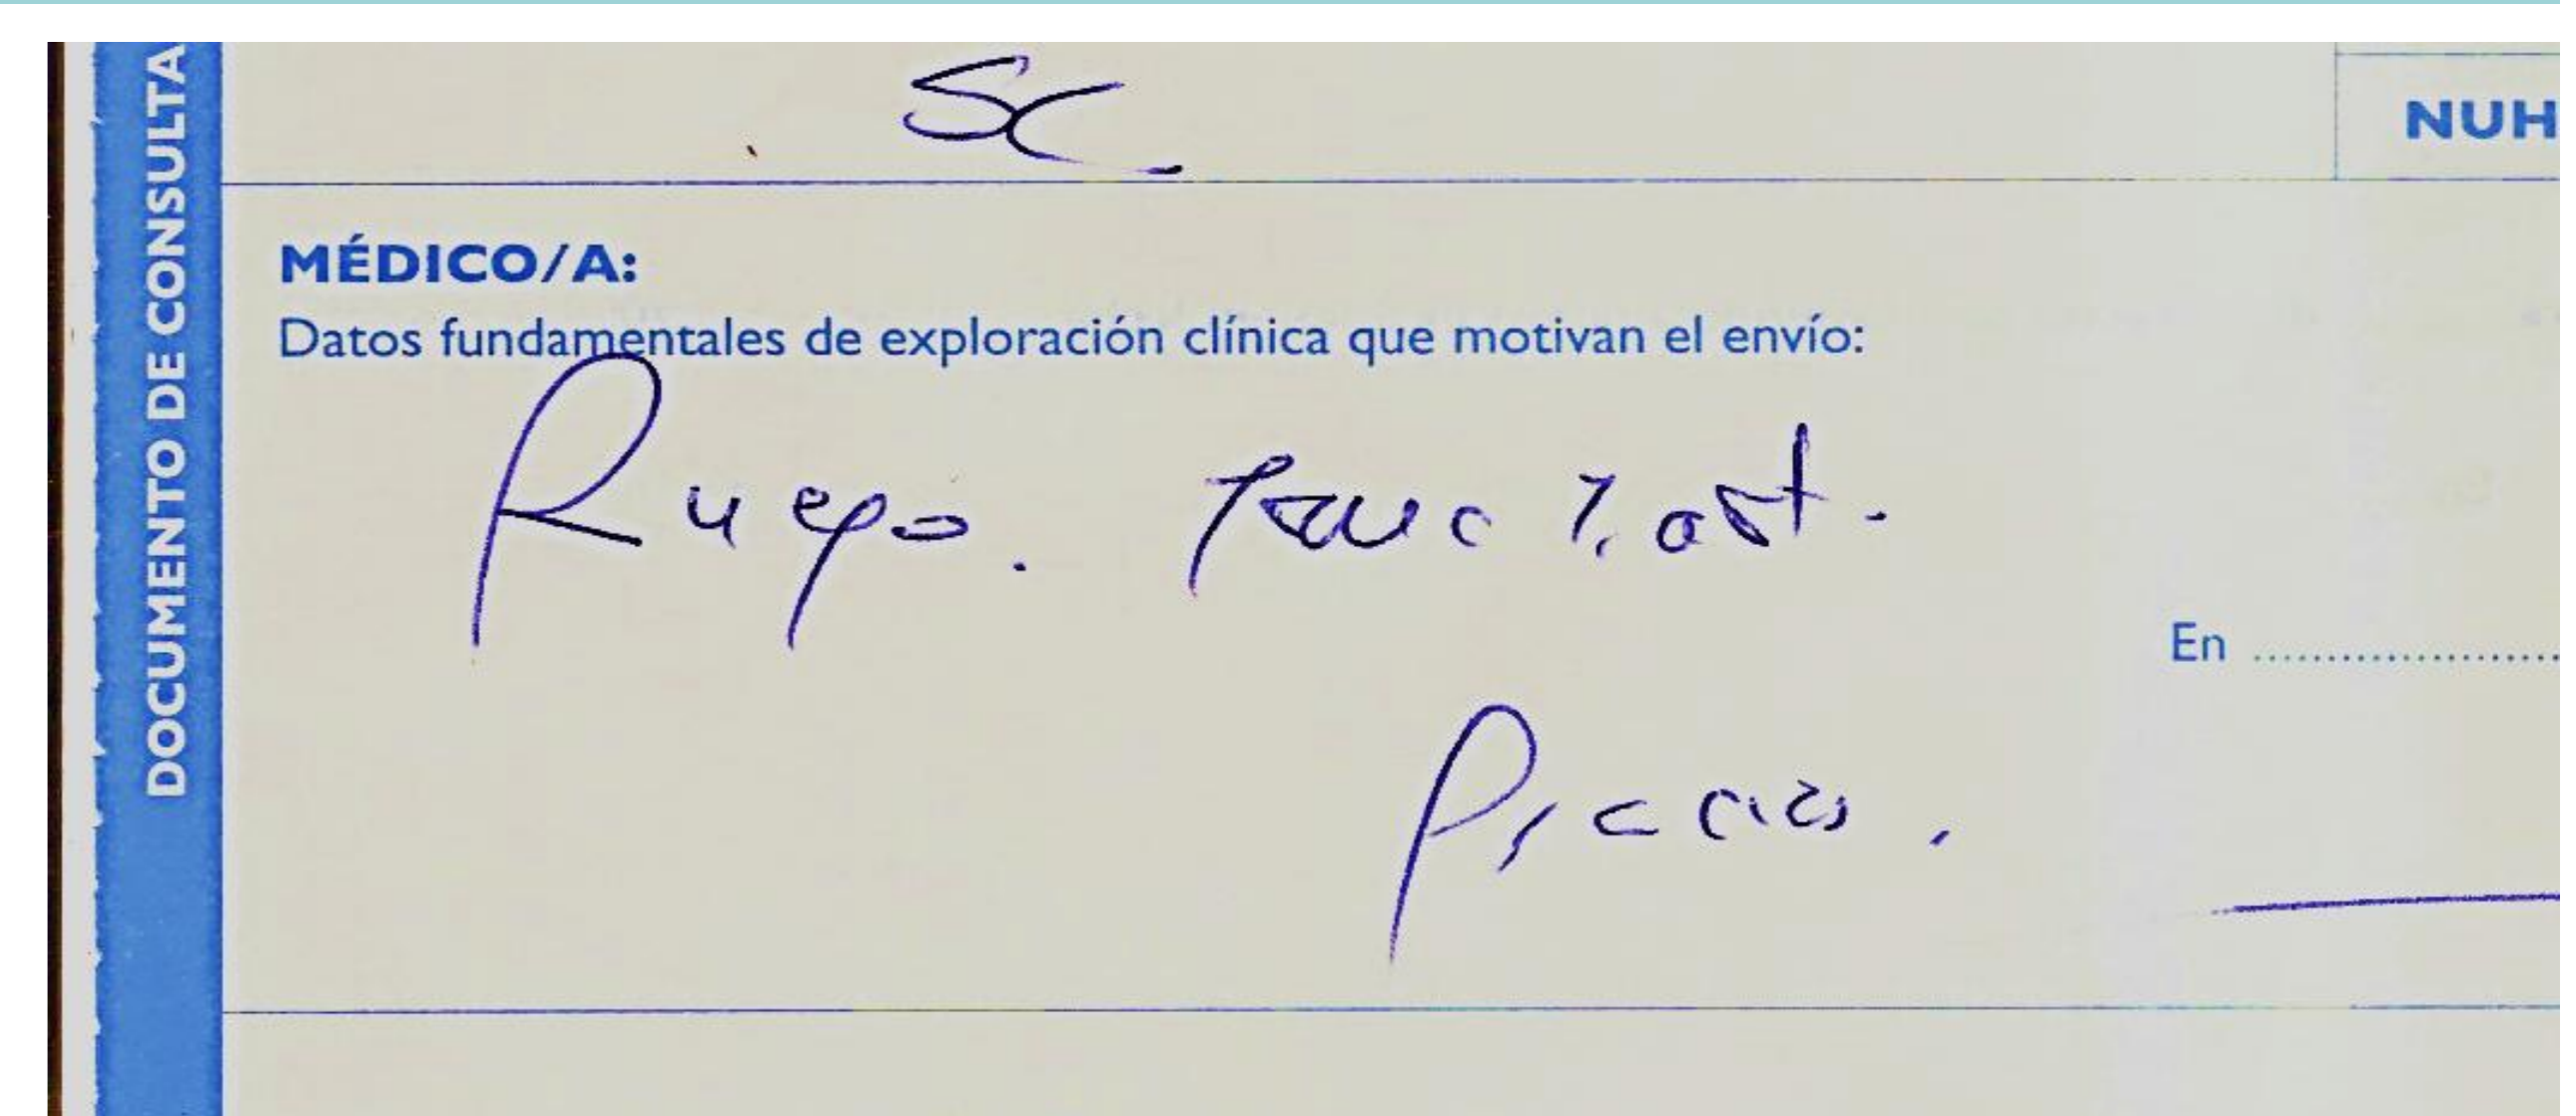 SC.
NUH
DOCUMENTO DE CONSULTA
MÉDICO/A:
Datos fundamentales de exploración clínica que motivan el envío:
Ruego.
En ....................